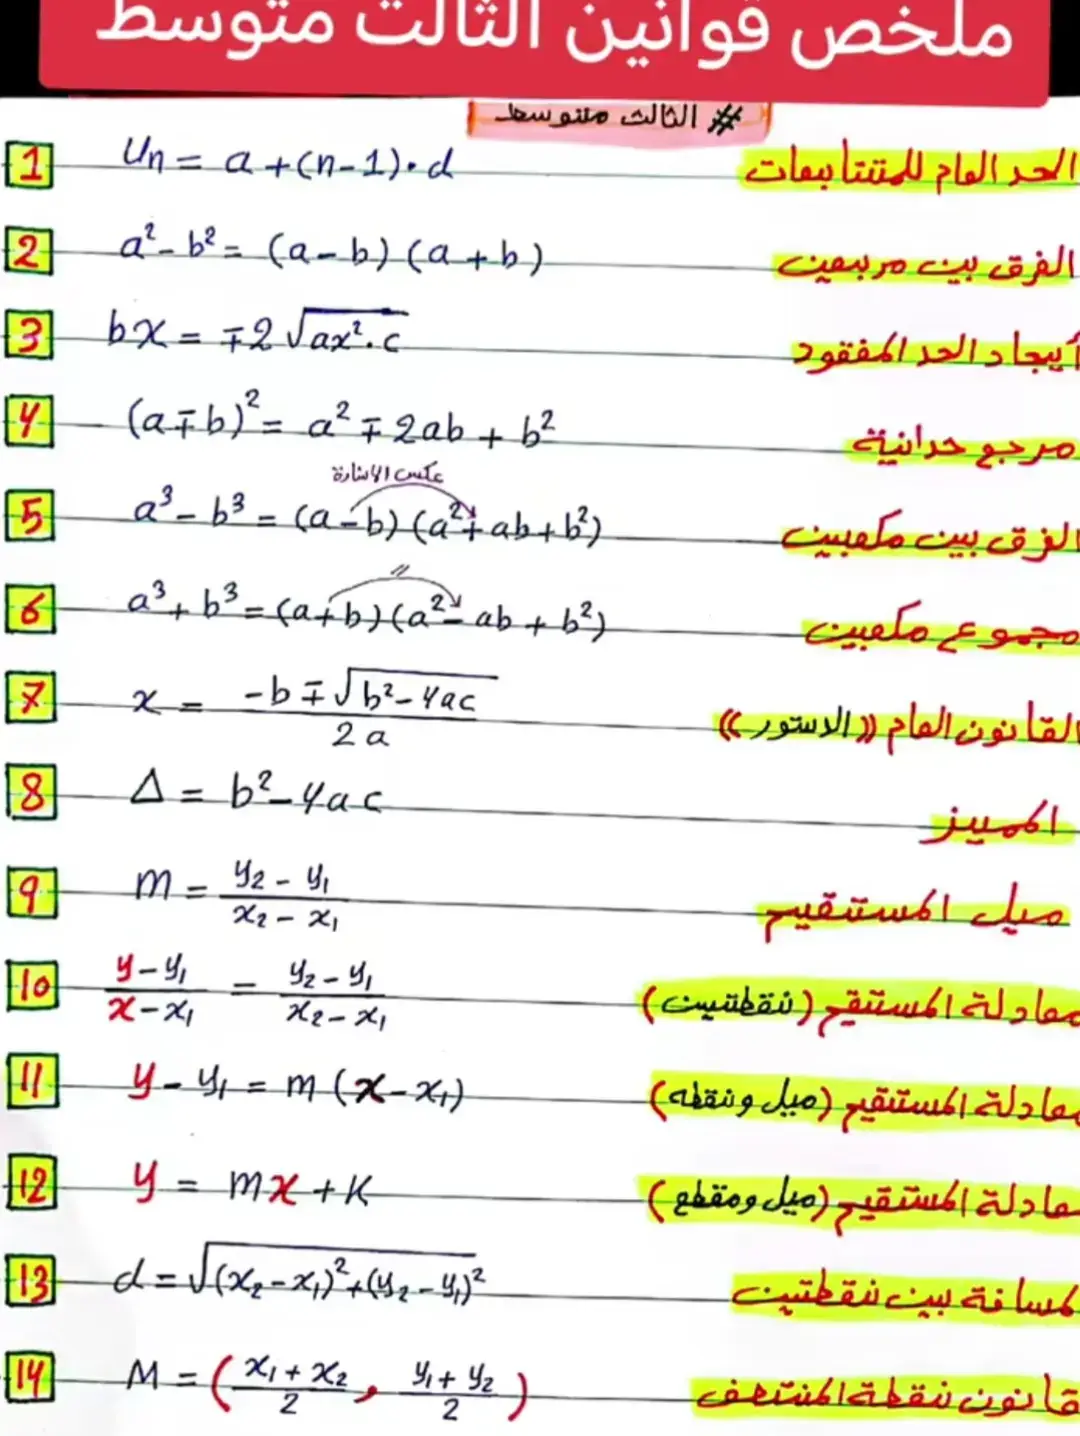 ملخص قوانين الثالث متوسط
# الثالث متوسط
1 Un = a + (n-1)·d الحد العام للمتتابعات
2 a² - b² = (a - b) (a + b) الفرق بين مربعين
3 bx = ∓2 √ax².c أيجاد الحد المفقود
4 (a∓b)² = a² ∓ 2ab + b² مربع حدانية
عكس الاشارة
5 a³ - b³ = (a - b) (a² + ab + b²) الفرق بين مكعبين
//
6 a³ + b³ = (a + b) (a² - ab + b²) مجموع مكعبين
7 x = (-b ∓ √b² - 4ac) / 2a القانون العام ((الدستور))
8 Δ = b² - 4ac المميز
9 m = (y₂ - y₁) / (x₂ - x₁) ميل المستقيم
10 (y - y₁) / (x - x₁) = (y₂ - y₁) / (x₂ - x₁) معادلة المستقيم (نقطتين)
11 y - y₁ = m (x - x₁) معادلة المستقيم (ميل ونقطه)
12 y = mx + K معادلة المستقيم (ميل ومقطع)
13 d = √(x₂ - x₁)² + (y₂ - y₁)² لمسافة بين نقطتين
14 M = ( (x₁ + x₂) / 2 , (y₁ + y₂) / 2 ) قانون نقطة المنتصف